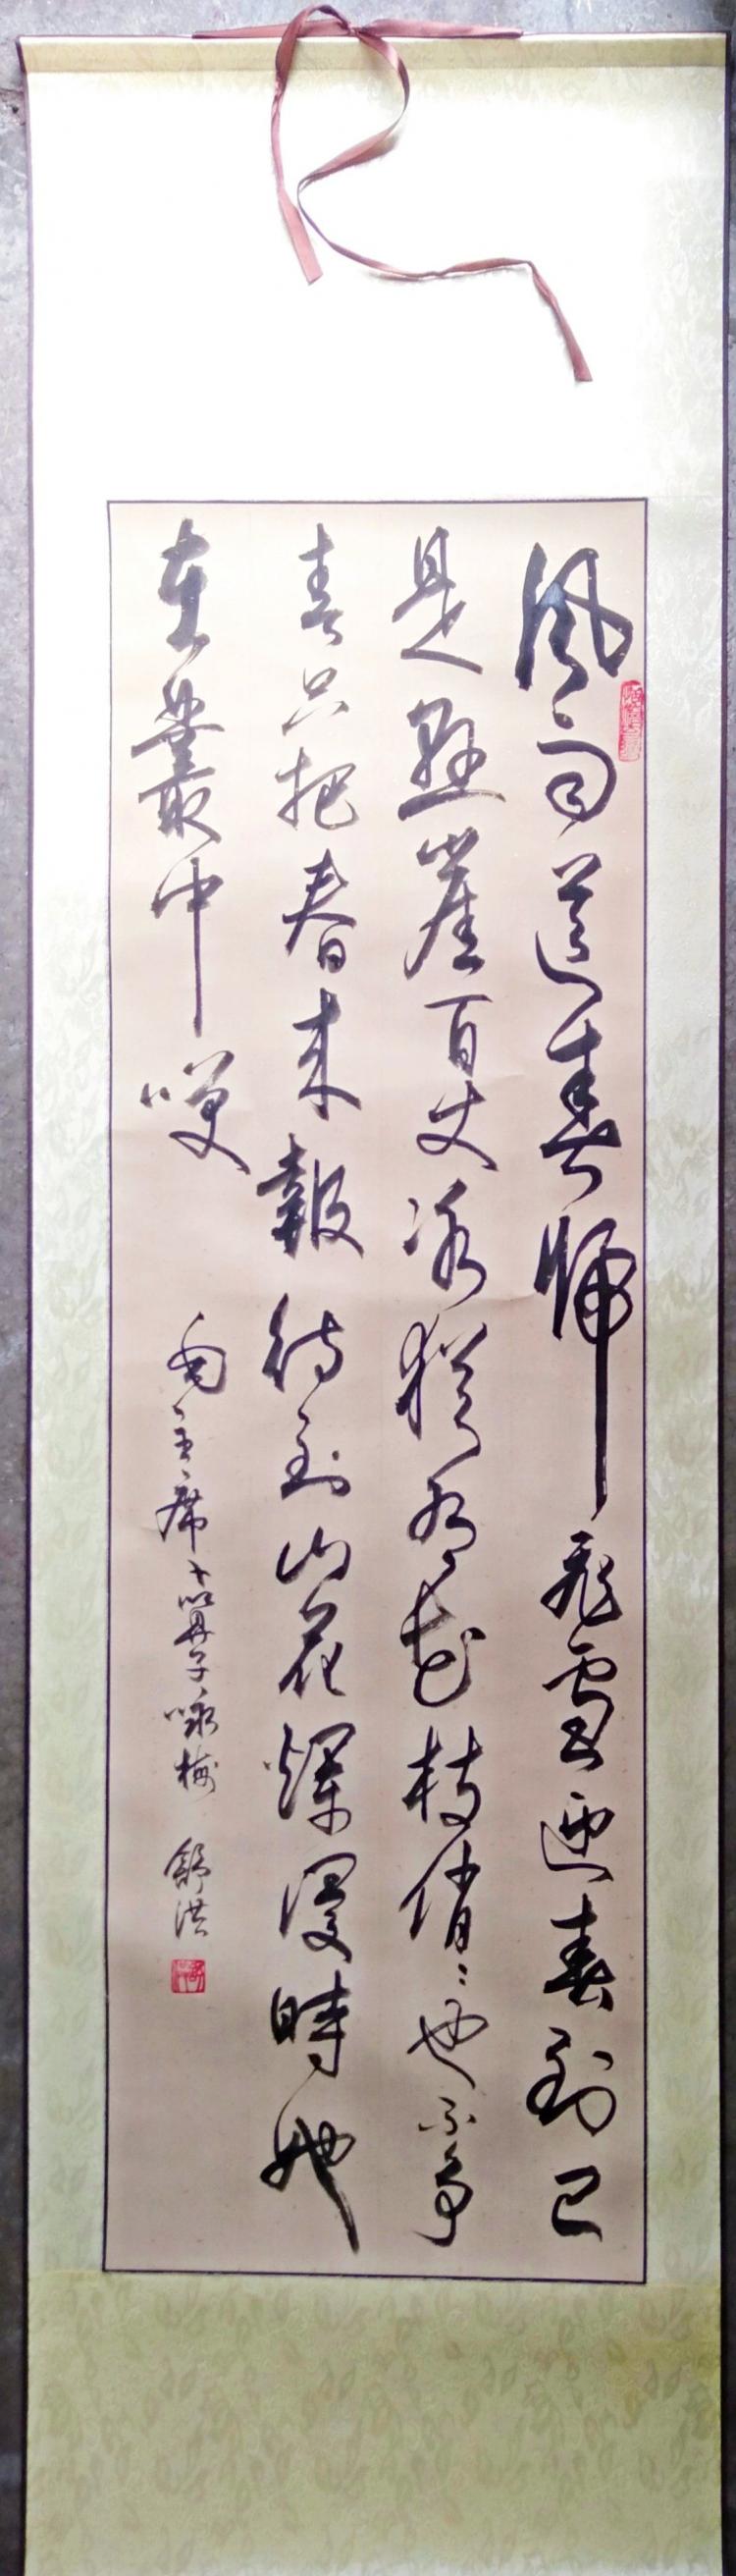 風雨送春歸飛雪迎春到已
是懸崖百丈冰猶有花枝俏〻也不爭
春只把春來報待到山花爛漫時她
在叢中咲
毛主席卜算子咏梅
舒洪